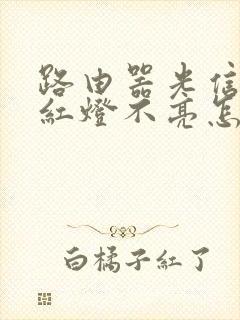 路由器光信
紅燈不亮怎
白橘子紅了